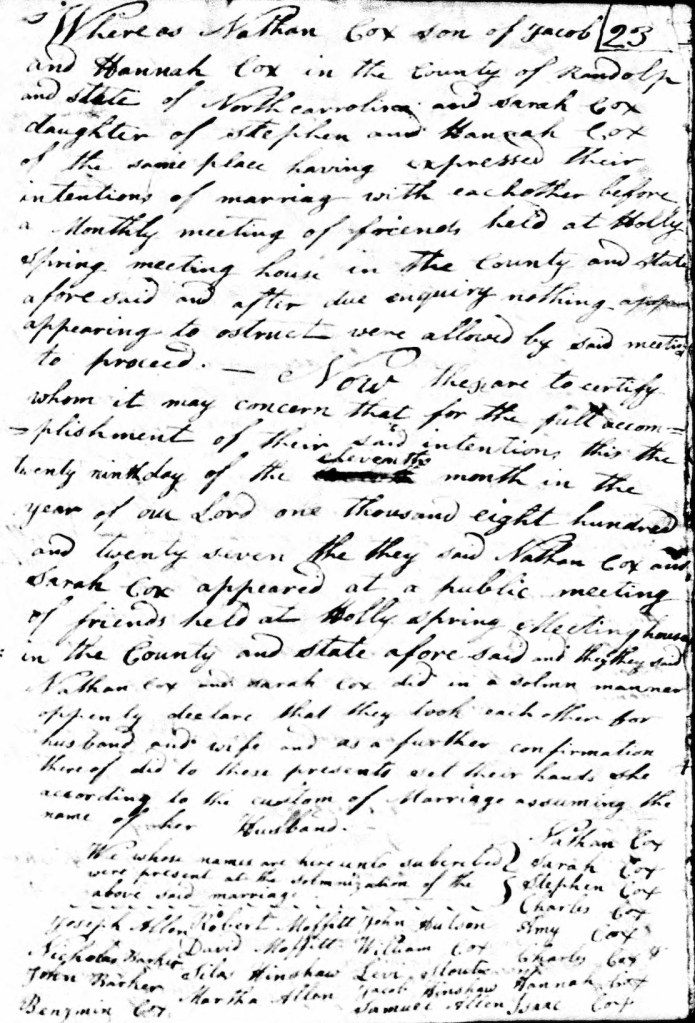 Whereas Nathan Cox son of Jacob 23
and Hannah Cox in the County of Randolp
and state of North carrolina and sarah Cox
daughter of stephen and Hannah Cox
of the same place having expressed their
intentions of marriag with eachother before
a Monthly meeting of friends held at Holly
spring meeting house in the County and state
afore said and after due enquiry nothing
appearing to ostruct were allowed by said meeting
to proceed. — Now these are to certify
whom it may concern that for the full accom=
=plishment of their said intentions this the
twenty ninth day of the eleventh month in the
year of our Lord one thousand eight hundred
and twenty seven the they said Nathan Cox and
Sarah Cox appeared at a public meeting
of friends held at Holly spring Meeting house
in the County and state afore said and they they said
Nathan Cox and sarah Cox did in a solmn manner
oppenly declare that they took each other for
husband and wife and as a further confirmation
thereof did to these presents set their hands she
according to the custom of Marriage assuming the
name of her Husband.
We whose names are hereunto subcribed
were present at the solmnization of the
above said marriage
Nathan Cox
Sarah Cox
Stephen Cox
Charles Cox
Joseph Allen Robert Moffitt John Hutson Amy Cox
Nicholas Barker David Moffitt William Cox Charles Cox
John Barker Silas Hinshaw Levi Hannah Cox
Benjmin Cox Martha Allen Jacob Hinshaw Isaac Cox
Samuel Allen